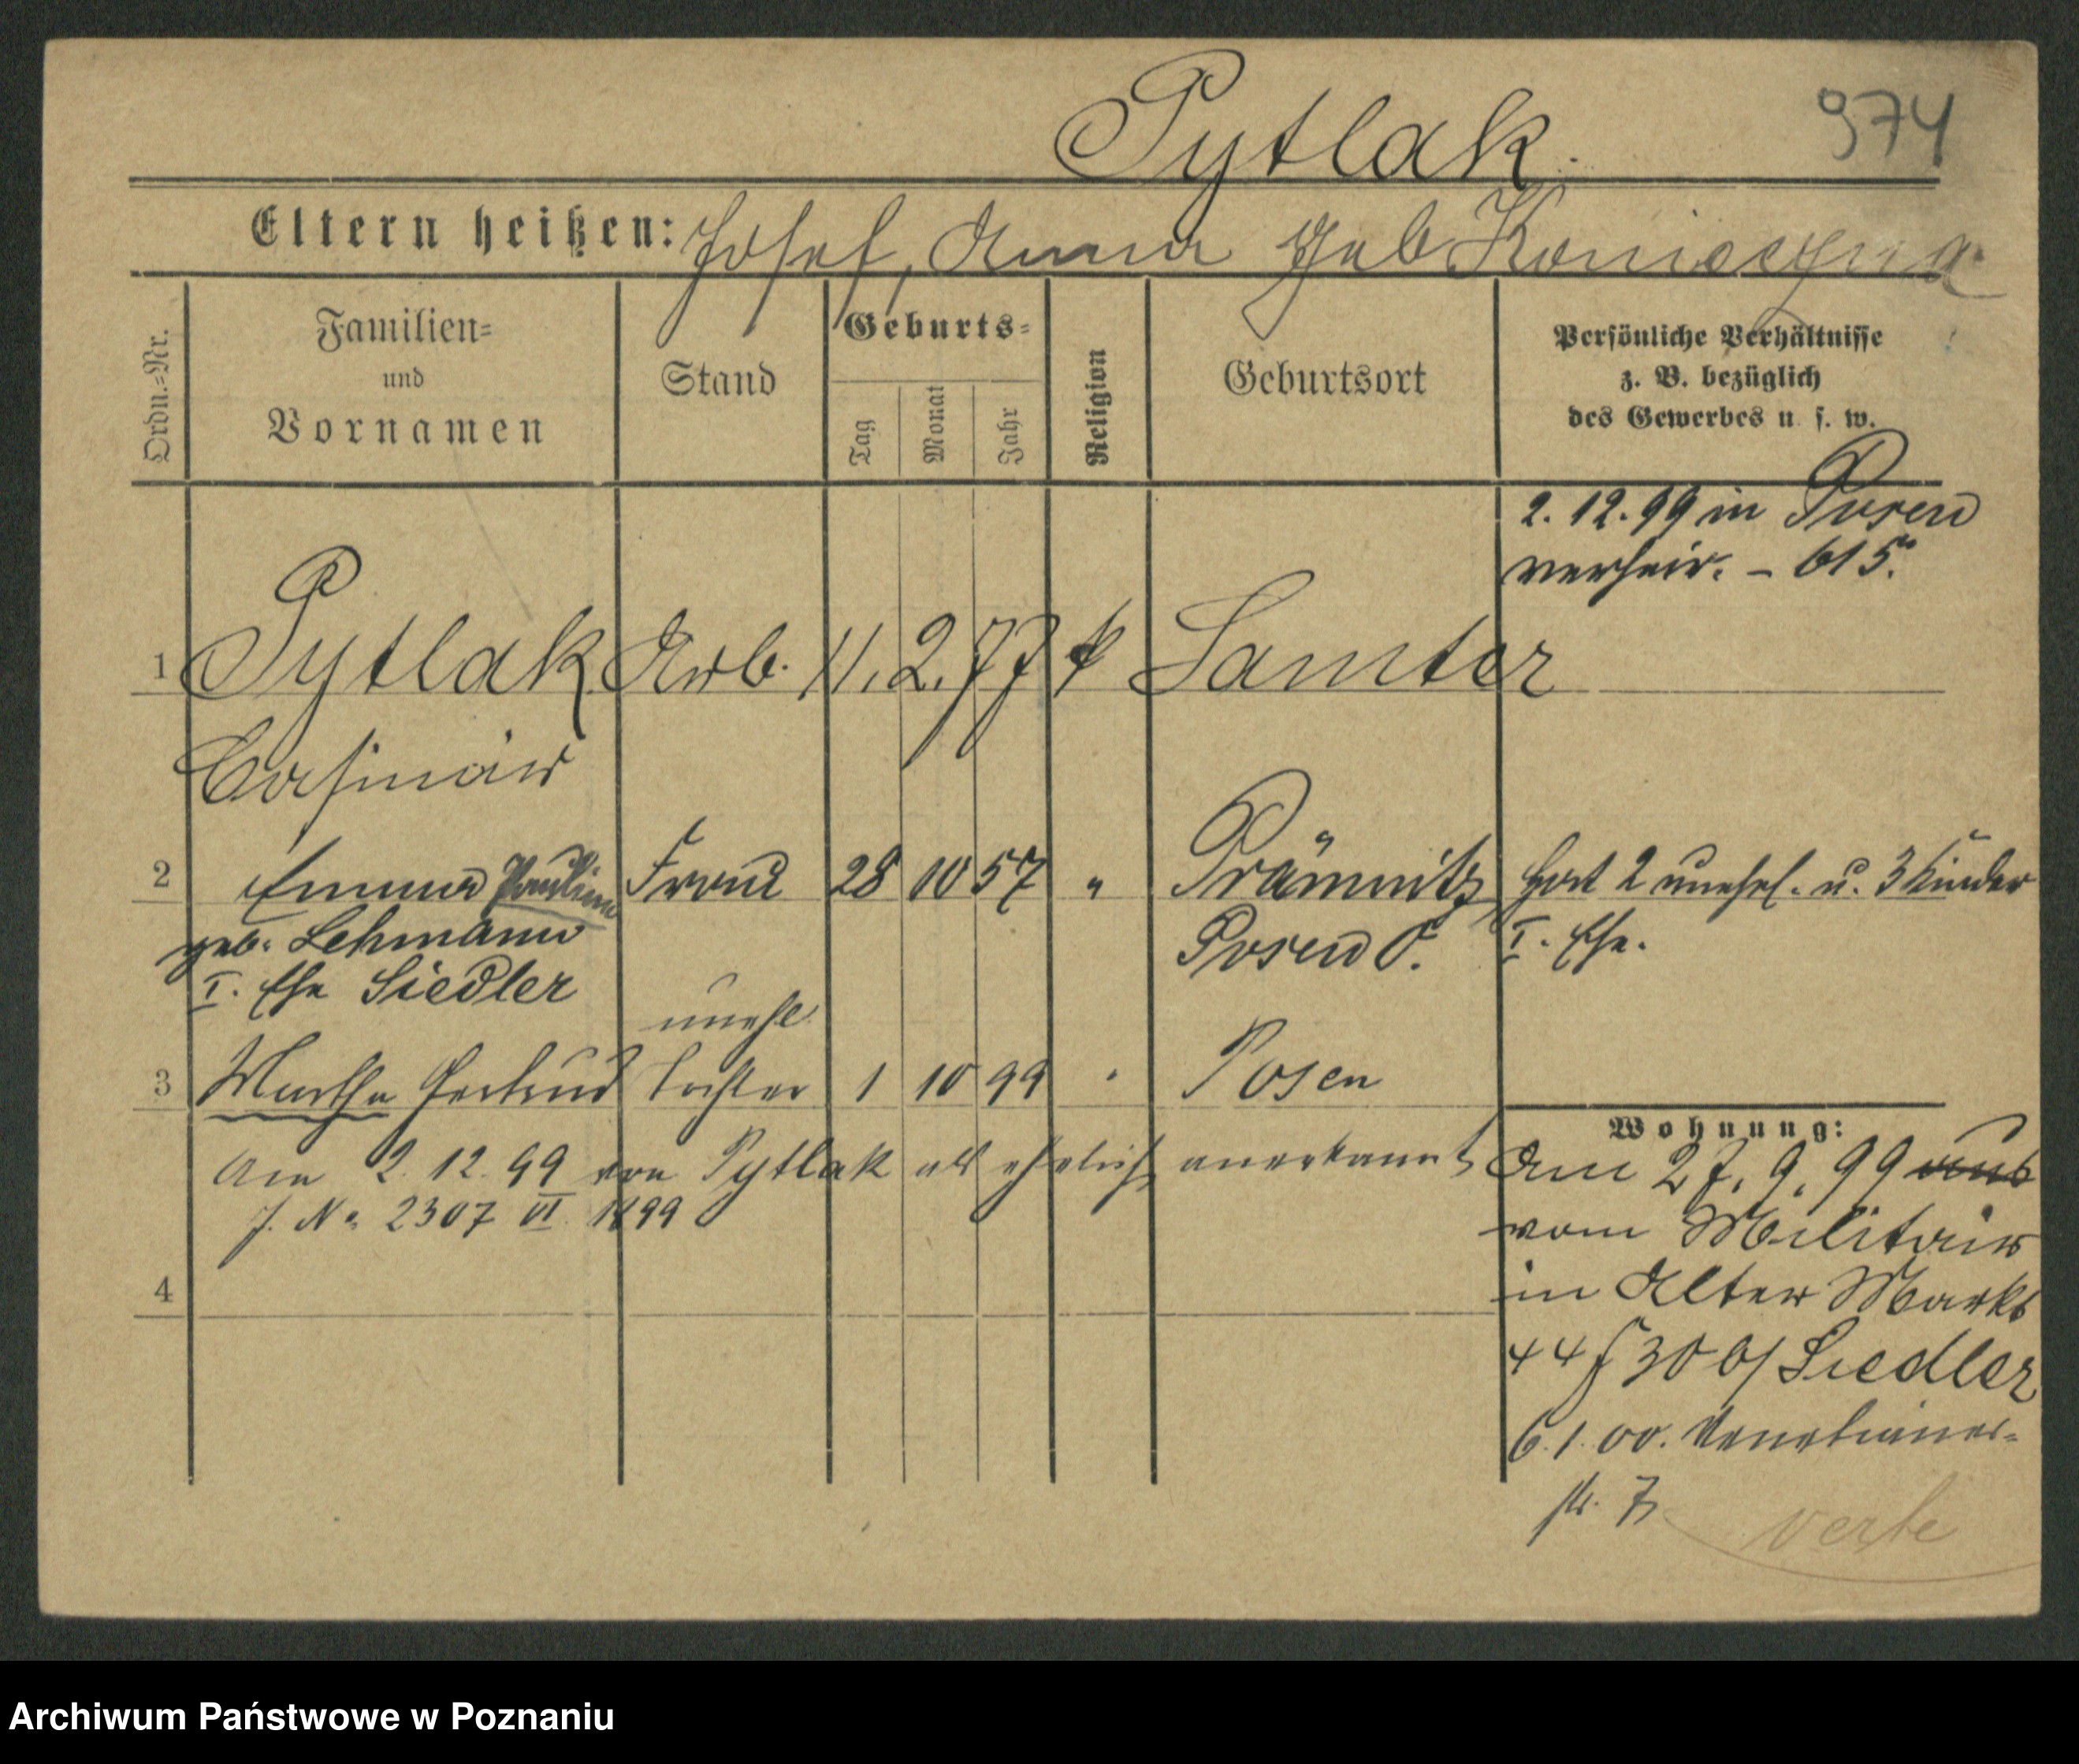 Pytlak.
974
Eltern heißen: Josef, Anna geb Konieczna
Ordn.=Nr.
Familien=
und
Vornamen
Stand
Geburts=
Tag
Monat
Jahr
Religion
Geburtsort
Persönliche Verhältnisse
z. B. bezüglich
des Gewerbes u. s. w.
2. 12. 99 in Posen
verheir. – 615.
1 Pytlak Arb. 11. 2. 77 k Samter
Casimir
2 Emma Pauline Frau 28 10 57 " Prämnitz hat 2 unehel. u. 3 Kinder
geb. Lehmann Posen O. I. Ehe.
I. Ehe Siedler
unehl.
3 Martha Gertrud Tochter 1 10 99 " Posen
Am 2. 12. 99 von Pytlak als ehelich anerkannt
J. No. 2307 VI. 1899
4
Wohnung:
Am 27. 9. 99
vom Militair
in Alter Markt
44 b/ Siedler
6. 1. 00. Venetianer-
str. 7
verte
Archiwum Państwowe w Poznaniu